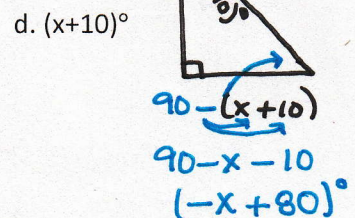 d. (x+10)°
90-(x+10)
90-x-10
(-x+80)°